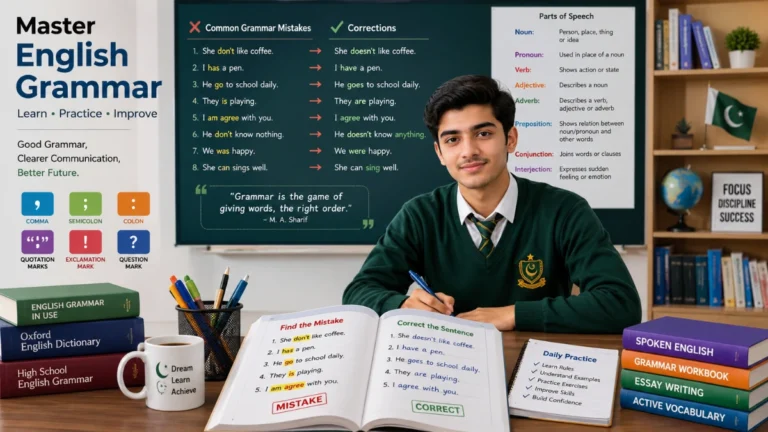 Master
English
Grammar
Learn • Practice • Improve
Good Grammar,
Clearer Communication,
Better Future.
,
COMMA
;
SEMICOLON
:
COLON
“;”
QUOTATION
MARKS
!
EXCLAMATION
MARK
?
QUESTION
MARK
❌ Common Grammar Mistakes ✓ Corrections
1. She don't like coffee. → She doesn't like coffee.
2. I has a pen. → I have a pen.
3. He go to school daily. → He goes to school daily.
4. They is playing. → They are playing.
5. I am agree with you. → I agree with you.
6. He don't know nothing. → He doesn't know anything.
7. We was happy. → We were happy.
8. She can sings well. → She can sing well.
"Grammar is the game of
giving words, the right order."
– M. A. Sharif
Parts of Speech
Noun: Person, place, thing
or idea
Pronoun: Used in place of a noun
Verb: Shows action or state
Adjective: Describes a noun
Adverb: Describes a verb,
adjective or adverb
Preposition: Shows relation between
noun/pronoun and other
words
Conjunction: Joins words or clauses
Interjection: Expresses sudden
feeling or emotion
FOCUS
DISCIPLINE
SUCCESS
ENGLISH GRAMMAR
IN USE
Oxford
English Dictionary
High School
English Grammar
Dream
Learn
Achieve
Find the Mistake
1. She don't like coffee.
2. I has a pen.
3. He go to school daily.
4. They is playing.
5. I am agree with you.
MISTAKE
Correct the Sentence
1. She doesn't like coffee.
2. I have a pen.
3. He goes to school daily.
4. They are playing.
5. I agree with you.
CORRECT
Daily Practice
✓ Learn Rules
✓ Understand Examples
✓ Practice Exercises
✓ Improve Skills
✓ Build Confidence
SPOKEN ENGLISH
GRAMMAR WORKBOOK
ESSAY WRITING
ACTIVE VOCABULARY